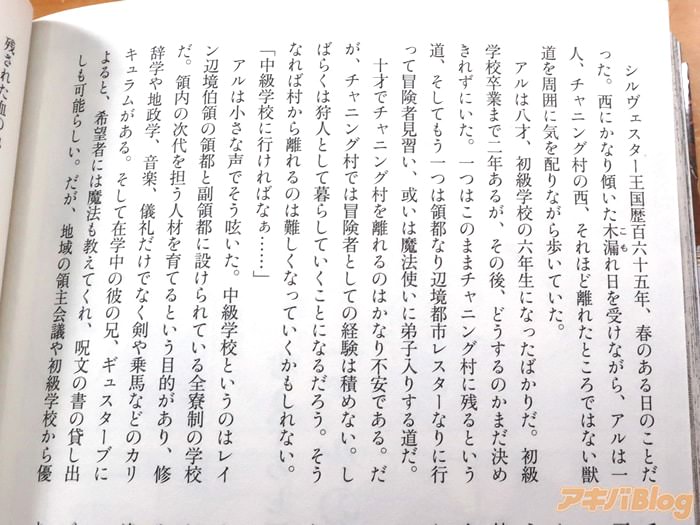 シルヴェスター王国歴百六十五年、春のある日のことだ
った。西にかなり傾いた木漏れ日を受けながら、アルは一
人、チャニング村の西、それほど離れたところではない獣
道を周囲に気を配りながら歩いていた。
アルは八才、初級学校の六年生になったばかりだ。初級
学校卒業まで二年あるが、その後、どうするのかまだ決め
きれずにいた。一つはこのままチャニング村に残るという
道、そしてもう一つは領都なり辺境都市レスターなりに行
って冒険者見習い、或いは魔法使いに弟子入りする道だ。
十才でチャニング村を離れるのはかなり不安である。だ
が、チャニング村では冒険者としての経験は積めない。し
ばらくは狩人として暮らしていくことになるだろう。そう
なれば村から離れるのは難しくなっていくかもしれない。
「中級学校に行ければなぁ……」
アルは小さな声でそう呟いた。中級学校というのはレイ
ン辺境伯領の領都と副領都に設けられている全寮制の学校
だ。領内の次代を担う人材を育てるという目的があり、修
辞学や地政学、音楽、儀礼だけでなく剣や乗馬などのカリ
キュラムがある。そして在学中の彼の兄、ギュスターブに
よると、希望者には魔法も教えてくれ、呪文の書の貸し出
しも可能らしい。だが、地域の領主会議や初級学校から優
残された血の
アキバBlog